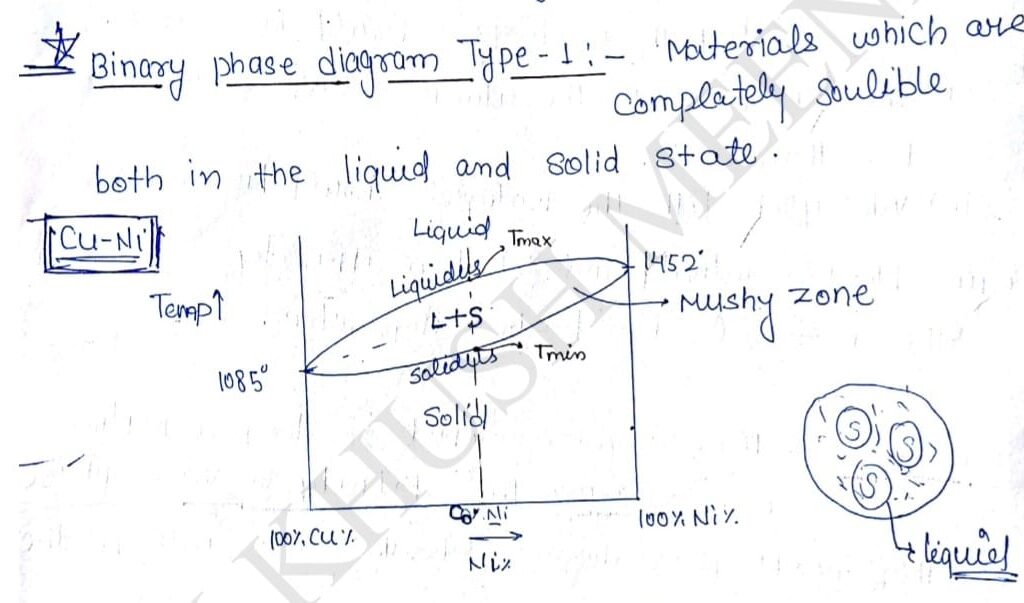 Binary phase diagram Type-1:- Materials which are
complately soulible
both in the liquid and solid state.
Cu-Ni
Liquid
Tmax
Liquidus
1452°
Temp↑
L+S
Mushy zone
Solidus
Tmin
1085°
Solid
S
S
S
Ni
100% Cu%
100% Ni%
Ni%
liquid
KHUSH MEEN